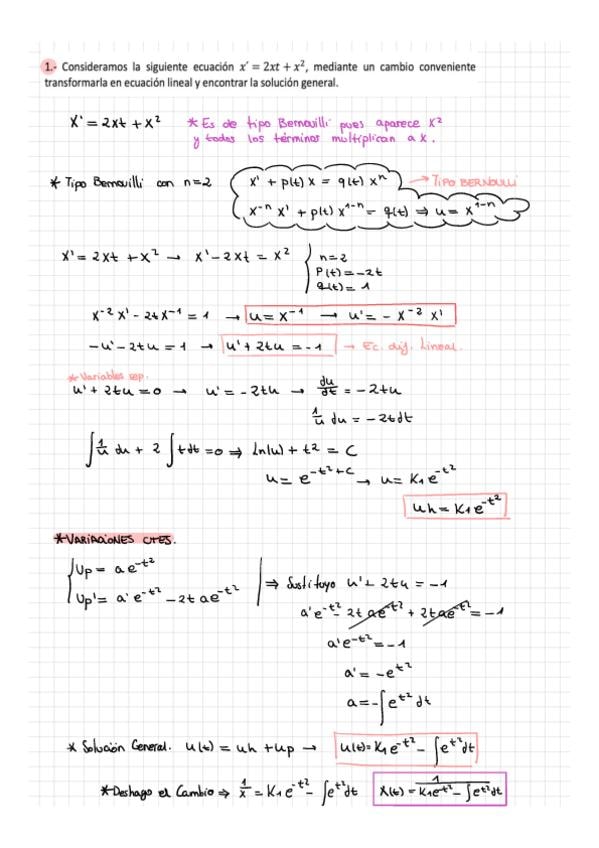 1.- Consideramos la siguiente ecuación x′ = 2xt + x², mediante un cambio conveniente
transformarla en ecuación lineal y encontrar la solución general.
x' = 2xt + x² * Es de tipo Bernouilli pues aparece x²
y todos los términos multiplican a x.
* Tipo Bernouilli con n=2 x' + p(t) x = q(t) xⁿ → TIPO BERNOULLI
x⁻ⁿ x' + p(t) x¹⁻ⁿ = q(t) ⇒ u = x¹⁻ⁿ
x' = 2xt + x² → x' - 2xt = x² { n=2
P(t) = -2t
q(t) = 1
x⁻² x' - 2t x⁻¹ = 1 → u = x⁻¹ → u' = - x⁻² x'
-u' - 2tu = 1 → u' + 2tu = -1 → Ec. dif. Lineal.
* Variables sep.
u' + 2tu = 0 → u' = -2tu → du/dt = -2tu
1/u du = -2tdt
∫ 1/u du + 2 ∫ tdt = 0 ⇒ ln(u) + t² = C
u = e^(-t²+C) → u = K₁e^(-t²)
uh = K₁e^(-t²)
* VARIACIONES CTES.
{ Up = a e^(-t²)
Up' = a' e^(-t²) - 2t a e^(-t²) | ⇒ Sustituyo u' + 2tu = -1
a'e^(-t²) - 2t ae^(-t²) + 2tae^(-t²) = -1
a'e^(-t²) = -1
a' = -e^(t²)
a = -∫ e^(t²) dt
* Solución General. u(t) = uh + up → u(t) = K₁e^(-t²) - ∫e^(t²)dt
* Deshago el Cambio ⇒ 1/x = K₁e^(-t²) - ∫e^(t²)dt x(t) = 1/(K₁e^(-t²) - ∫e^(t²)dt)